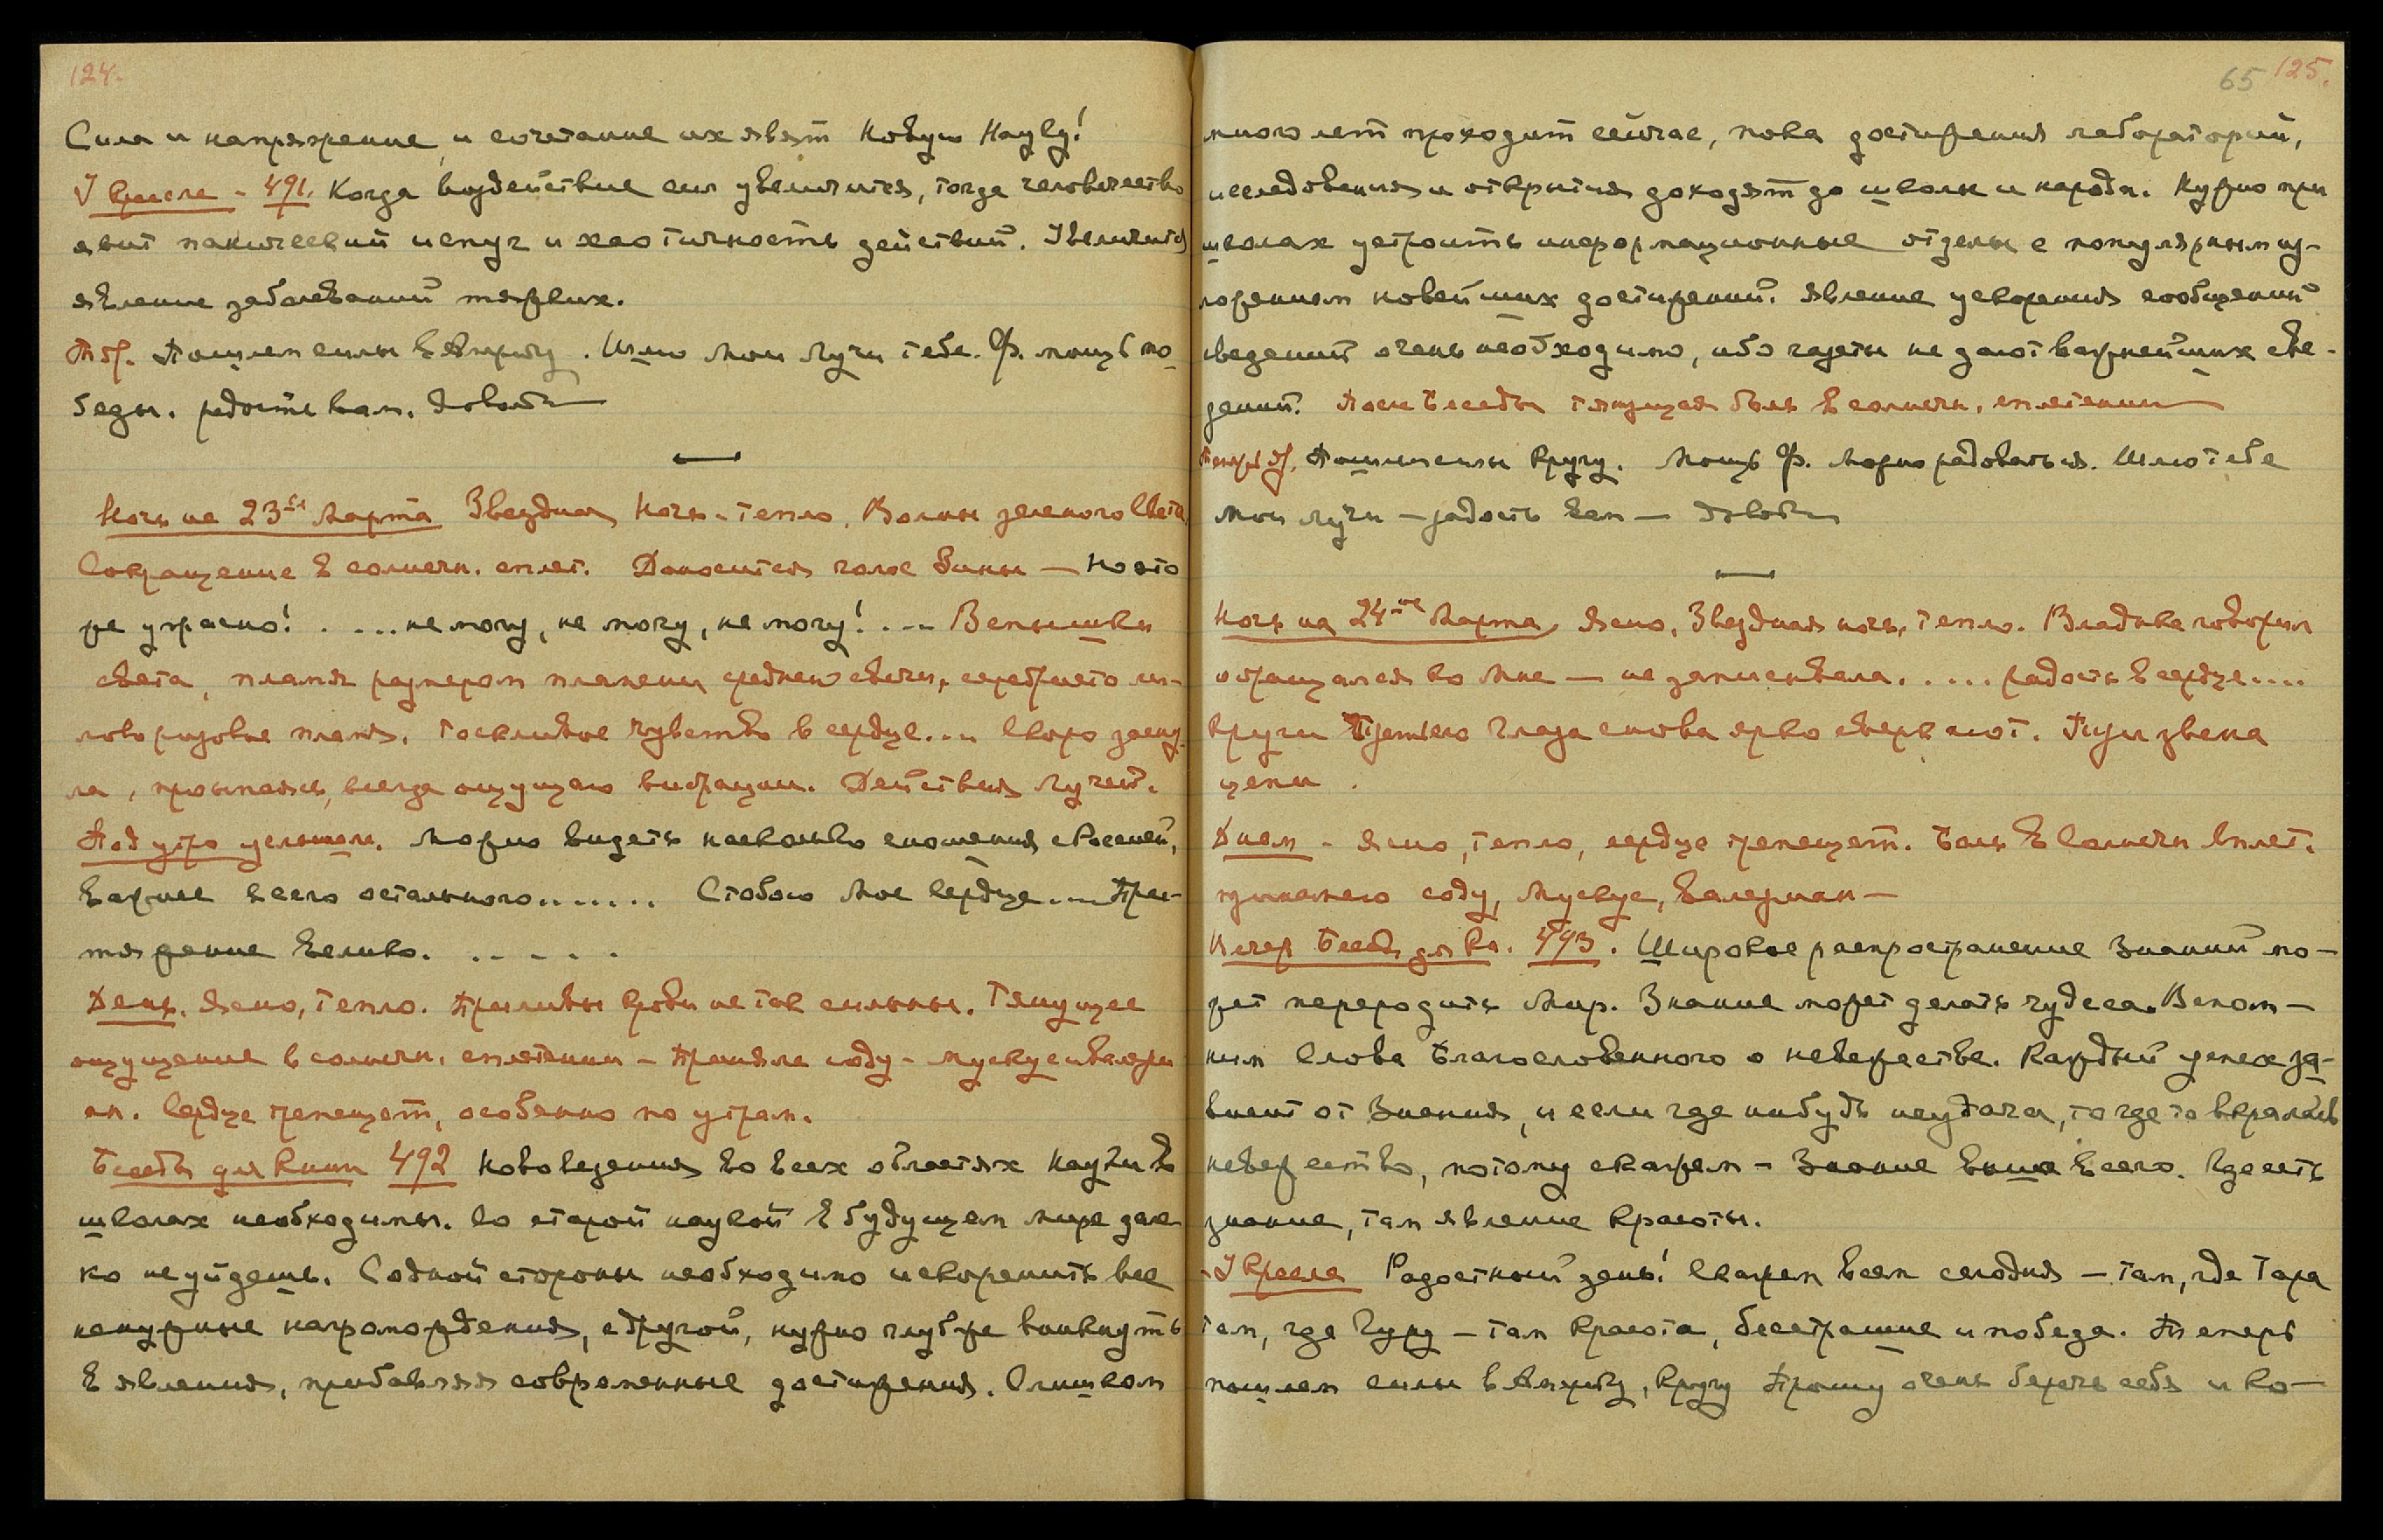 124.
Сила и напряжение, и сочетание их явят Новую Науку!
У кресла - 491. Когда воздействие сил увеличится, тогда человечество
явит панический испуг и хаотичность действий. Увеличится
явление заболеваний тяжких.
Пошлем силы в Америку. Шлю Мои Лучи тебе. Ф. мощь по-
беды. радость вам. Довольно
Ночь на 23-ье Марта Звездная Ночь - тепло, Волны зеленого Света
Сокращение в солнечн. сплет. Доносится голос Зины — Но это
же ужасно! .... не могу, не могу, не могу! ... Вспышки
света, пламя размером пламени средней свечи, серебристо ли-
лово розовое пламя. Тоскливое чувство в сердце... Скоро засну-
ла, просыпаясь, всегда ощущаю вибрации. Действия Лучей.
Под утро услышала. Можно видеть насколько сношения с Россией,
важнее всего остального....... С тобою Мое Сердце.... При-
тяжение велико. . . . . .
День. Ясно, тепло. Приливы крови не так сильны. Тянущее
ощущение в солнечн. сплетении - Приняла соду - мускус и валерь
ян. Сердце трепещет, особенно по утрам.
Беседы для Книги 492 Нововедения во всех областях Науки и в
школах необходимы. Со старой наукой в будущем мире дале-
ко не уйдешь. С одной стороны необходимо искоренить все
ненужные нагромождения, с другой, нужно глубже вникнуть
в явления, прибавляя современные достижения. Слишком
65 125.
много лет проходит сейчас, пока достижения лабораторий,
исследования и открытия доходят до школы и народа. Нужно при
школах устроить информационные отделы с популярным из-
ложением новейших достижений. Явление ускорения сообщений
сведений очень необходимо, ибо газеты не дают важнейших све-
дений. После Беседы тянущая боль в солнечн. сплетении
Пошлем силы Кругу. Мощь Ф. Можно радоваться. Шлю тебе
Мои Лучи — радость вам — Довольно
Ночь на 24-ое Марта, Ясно, Звездная ночь, тепло. Владыка говорил
обращался ко Мне — не записывала. .... радость в сердце....
Круги Третьего Глаза снова ярко сверкают. Три звена
цепи.
Днем - Ясно, тепло, сердце трепещет. Боль в Солнечн Сплет.
принимаю соду, Мускус, Валериан —
Вечер Беседы для Кн. 493. Широкое распространение Знаний мо-
жет переродить Мир. Знание может делать чудеса. Вспом-
ним Слова Благословенного о невежестве. Каждый успех за-
висит от Знания, и если где нибудь неудача, то где то вкралось
невежество, потому скажем - Знание выше всего. Где есть
знание, там явление Красоты.
- У Кресла Радостный день! Скажем всем сегодня — там, где Тара
там, где Гуру — там Красота, бесстрашие и победа. Теперь
пошлем силы в Америку, Кругу Прошу очень беречь себя и Ко-